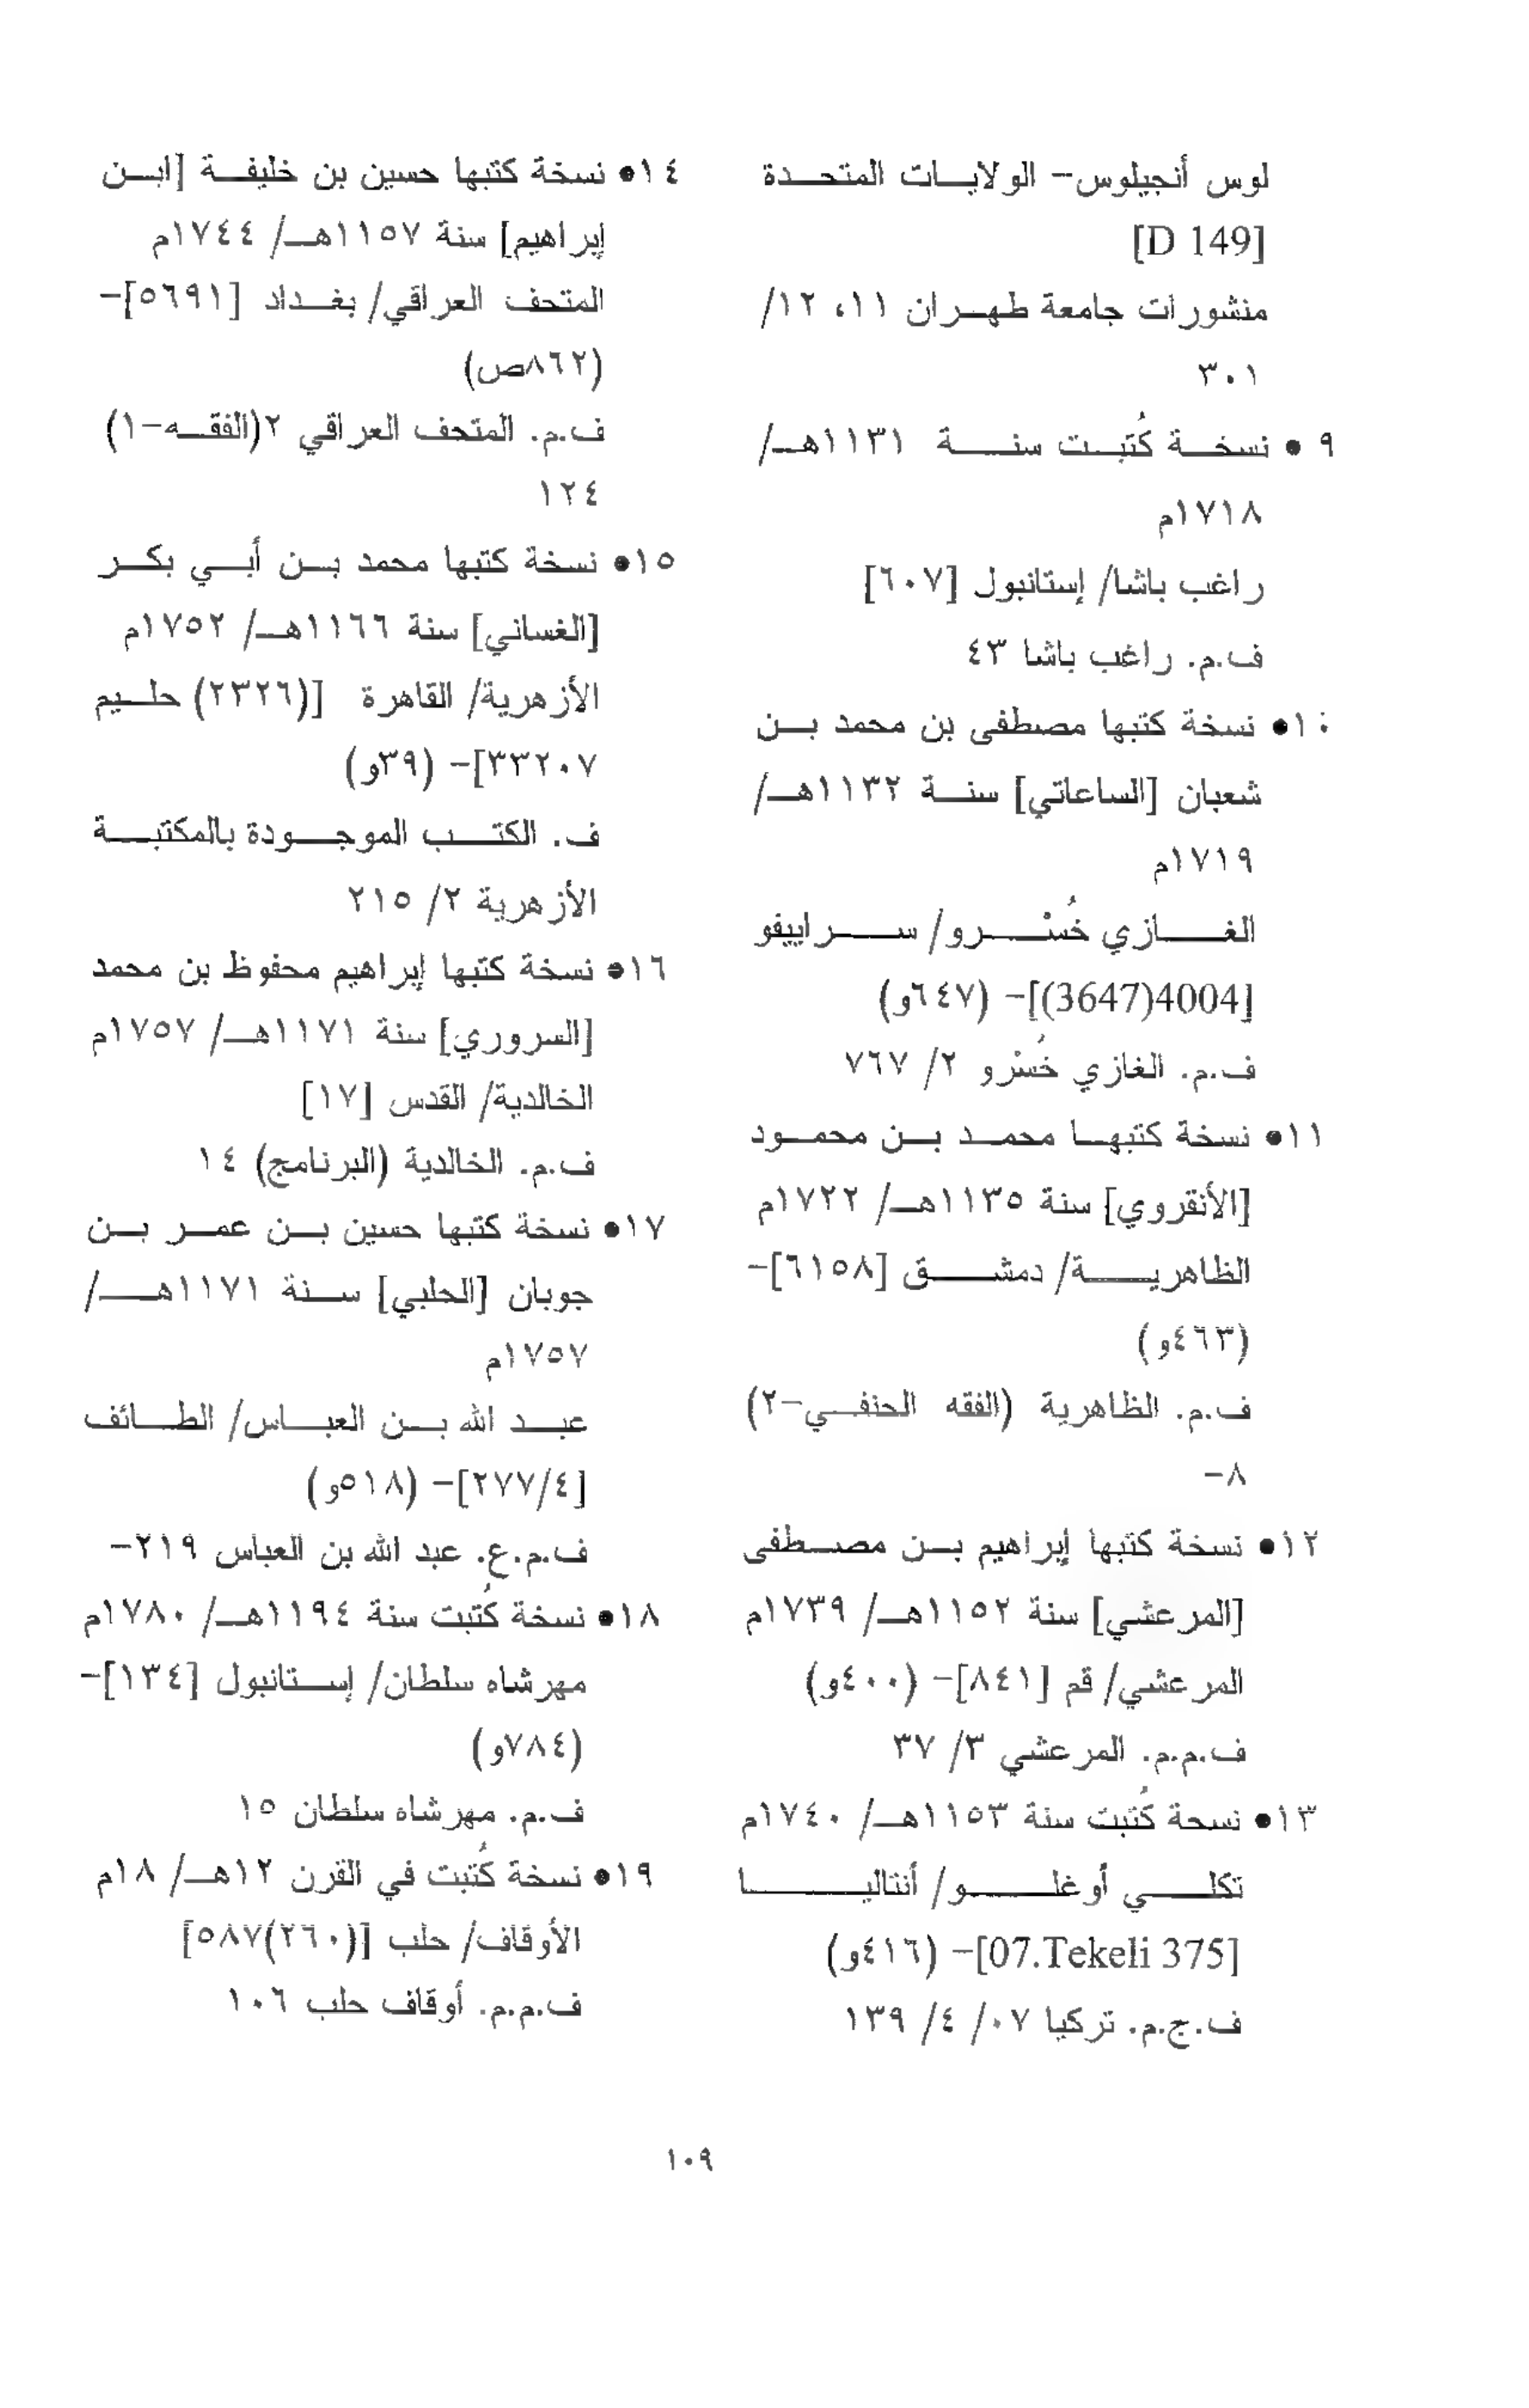 لوس أنجيلوس- الولايات المتحدة
[D 149]
منشورات جامعة طهران ١١، ١٢/
٣٠١
٩ • نسخة كُتبت سنة ١١٣١هـ/
١٧١٨م
راغب باشا/ إستانبول [٦٠٧]
ف.م. راغب باشا ٤٣
١٠• نسخة كتبها مصطفى بن محمد بن
شعبان [الساعاتي] سنة ١١٣٢هـ/
١٧١٩م
الغازي خُسْرو/ سراييفو
[4004(3647)]- (٦٤٧و)
ف.م. الغازي خُسْرو ٢/ ٧٦٧
١١• نسخة كتبها محمد بن محمود
[الأنقروي] سنة ١١٣٥هـ/ ١٧٢٢م
الظاهرية/ دمشق [٦١٥٨]-
(٤٦٣و)
ف.م. الظاهرية (الفقه الحنفي-٢)
٨-
١٢• نسخة كتبها إبراهيم بن مصطفى
[المرعشي] سنة ١١٥٢هـ/ ١٧٣٩م
المرعشي/ قم [٨٤١]- (٤٠٠و)
ف.م.م. المرعشي ٣/ ٣٧
١٣• نسحة كُتبت سنة ١١٥٣هـ/ ١٧٤٠م
تكلي أوغلو/ أنتاليا
[07.Tekeli 375]- (٤١٦و)
ف.ج.م. تركيا ٠٧/ ٤/ ١٣٩
١٤• نسخة كتبها حسين بن خليفة [ابن
إبراهيم] سنة ١١٥٧هـ/ ١٧٤٤م
المتحف العراقي/ بغداد [٥٦٩١]-
(٨٦٢ص)
ف.م. المتحف العراقي ٢(الفقه-١)
١٢٤
١٥• نسخة كتبها محمد بن أبي بكر
[الغساني] سنة ١١٦٦هـ/ ١٧٥٢م
الأزهرية/ القاهرة [(٢٣٢٦) حليم
٣٣٢٠٧]- (٣٩و)
ف. الكتب الموجودة بالمكتبة
الأزهرية ٢/ ٢١٥
١٦• نسخة كتبها إبراهيم محفوظ بن محمد
[السروري] سنة ١١٧١هـ/ ١٧٥٧م
الخالدية/ القدس [١٧]
ف.م. الخالدية (البرنامج) ١٤
١٧• نسخة كتبها حسين بن عمر بن
جوبان [الحلبي] سنة ١١٧١هـ/
١٧٥٧م
عبد الله بن العباس/ الطائف
[٢٧٧/٤]- (٥١٨و)
ف.م.ع. عبد الله بن العباس ٢١٩-
١٨• نسخة كُتبت سنة ١١٩٤هـ/ ١٧٨٠م
مهرشاه سلطان/ إستانبول [١٣٤]-
(٧٨٤و)
ف.م. مهرشاه سلطان ١٥
١٩• نسخة كُتبت في القرن ١٢هـ/ ١٨م
الأوقاف/ حلب [(٢٦٠)٥٨٧]
ف.م.م. أوقاف حلب ١٠٦
١٠٩